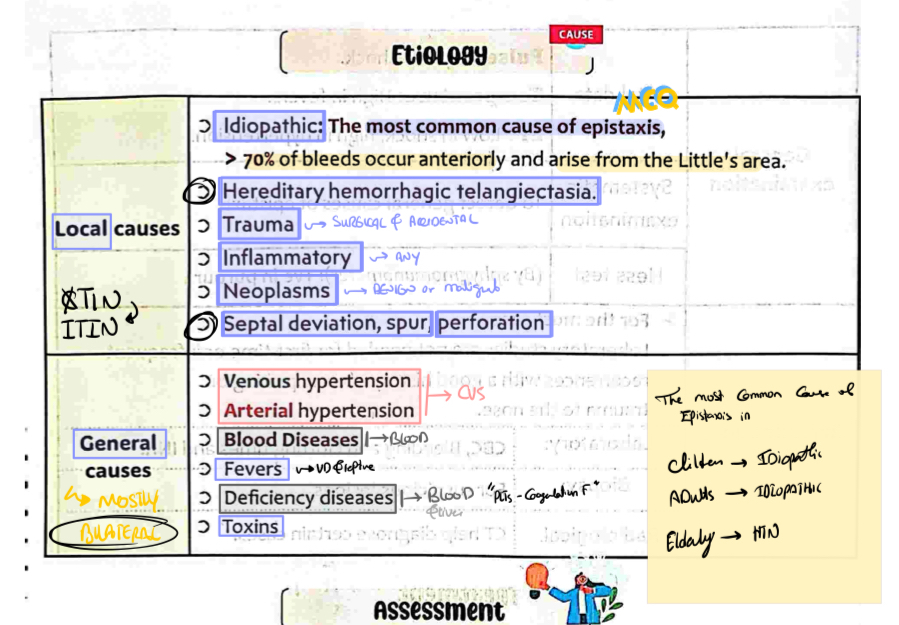 Etiology
CAUSE
MCQ
Local causes
ITIN
Idiopathic: The most common cause of epistaxis,
> 70% of bleeds occur anteriorly and arise from the Little's area.
Hereditary hemorrhagic telangiectasia.
Trauma → SURGICAL & ACCIDENTAL
Inflammatory → ANY
Neoplasms → BENIGN or
Septal deviation, spur, perforation
General causes
→ MOSTLY
BILATERAL
Venous hypertension
Arterial hypertension
→ CVS
Blood Diseases → BLOOD
Fevers
Deficiency diseases → BLOOD
Toxins
The most Common Cause of
Epistaxis in
→ IDiopathic
ADults → IDIOPATHIC
→ HTN
Assessment